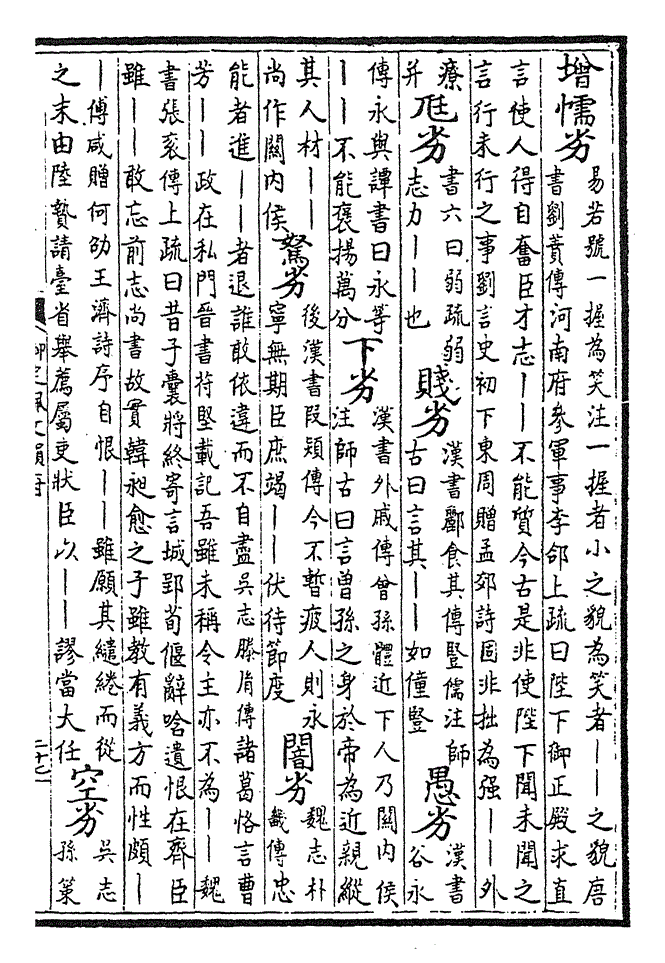 增懦劣
易若號一握為笑注一握者小之貌為笑者——之貌唐
書劉蕡傳河南府參軍事李郃上疏曰陛下御正殿求直
言使人得自奮臣才志——不能質今古是非使陛下聞未聞之
言行未行之事劉言史初下東周贈孟郊詩固非拙為强——外
療
并
尫劣
書六曰弱疏弱
志力——也
賤劣
漢書酈食其傳豎儒注師
古曰言其——如僮豎
愚劣
漢書
谷永
傳永與譚書曰永等
——不能褒揚萬分
下劣
漢書外戚傳曾孫體近下人乃關内侯
注師古曰言曾孫之身於帝為近親縱
其人材——
尚作關内侯
駑劣
後漢書段熲傳今不暫疲人則永
寧無期臣庶竭——伏待節度
闇劣
魏志朴
畿傳忠
能者進——者退誰敢依違而不自盡吳志滕胤傳諸葛恪言曹
芳——政在私門晉書苻堅載記吾雖未稱令主亦不為——魏
書張衮傳上疏曰昔子囊將終寄言城郢荀偃辭唅遺恨在齊臣
雖——敢忘前志尚書故實韓昶愈之子雖教有義方而性頗—
—傅咸贈何劭王濟詩序自恨——雖願其繾綣而從
之末由陸贄請臺省舉薦屬吏狀臣以——謬當大任
空劣
吳志
孫策